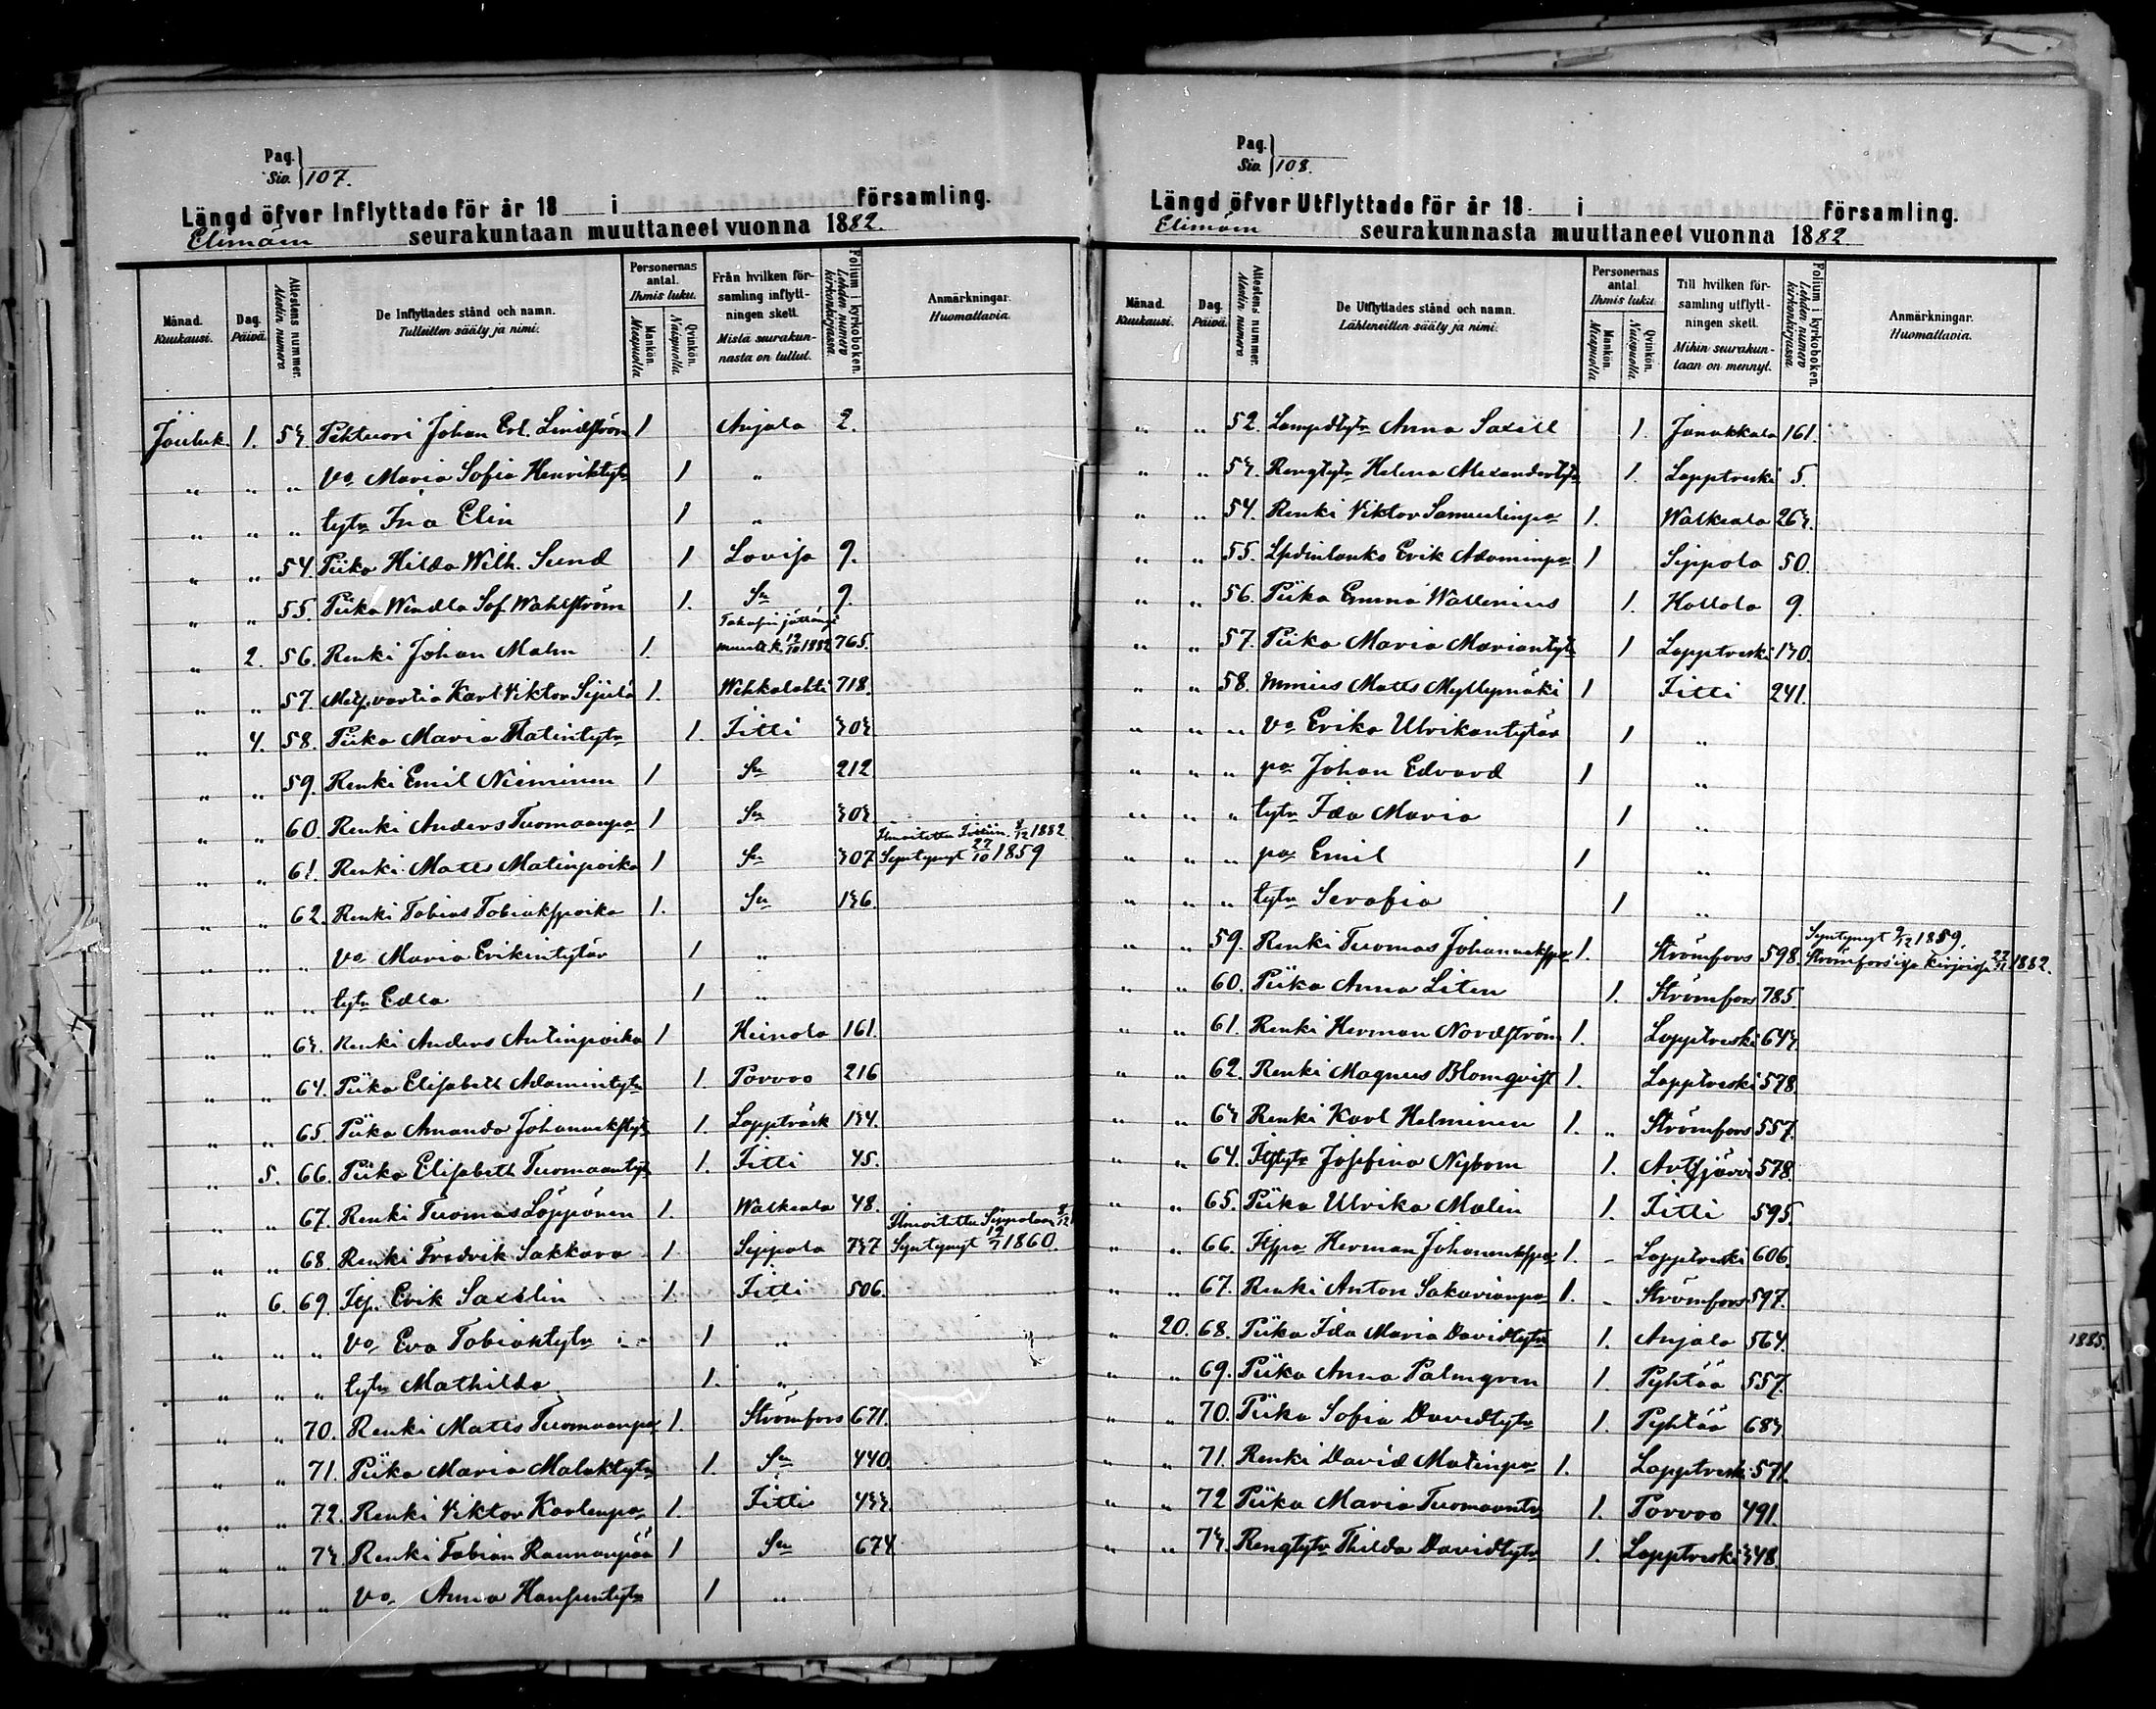 Pag.
Siv. 107.
Längd öfver Inflyttade för år 18 i församling.
Elimäen seurakuntaan muuttaneet vuonna 1882.
Månad. Kuukausi. Dag. Päivä. Attestens nummer. Atestin numero. De Inflyttades stånd och namn. Tulleitten sääty ja nimi. Personernas antal. Ihmis luku. Mankön. Miespuolia. Qvinkön. Naispuolia. Från hvilken församling inflyttningen skett. Mistä seurakunnasta on tullut. Folium i kyrkoboken. Lehden numero kirkonkirjassa. Anmärkningar. Huomattavia.
Jouluk. 1. 53. Johan Erl. Lindström 1 Anjala 2.
" " " vo Maria Sofia Henriktytr 1 "
" " " tytr Ina Elin 1 "
" " 54. Piika Hilda Wilh. Sund 1 Lovisa 9.
" " 55. Piika Wendla Sof. Wahlström 1. Sn 9.
" 2. 56. Renki Johan Malm 1. 19/10 1882 765.
" " 57. Karl Viktor 1. Wehkalahti 718.
" 4. 58. Piika Maria Matintytr 1. Iitti 303
" " 59. Renki Emil Nieminen 1 Sn 212
" " 60. Renki Anders Tuomaanpo 1 Sn 303
" " 61. Renki Matts Matinpoika 1 Sn 307 Ilmoitettu Iittiin 8/12 1882. Syntynyt 27/10 1859
" " 62. Renki Tobias Tobiakspoika 1. Sn 136.
" " " vo Maria Erikintytär 1 "
" " " tytr Edla 1 "
" " 63. Renki Anders Antinpoika 1 Heinola 161.
" " 64. Piika Elisabeth Adamintytr 1. Porvoo 216
" " 65. Piika Amanda Johanukstyt 1. Lappträsk 134.
" 5. 66. Piika Elisabeth Tuomaantyt 1. Iitti 45.
" " 67. Renki Tuomas Löppönen 1. Walkeala 48.
" " 68. Renki Fredrik Sakkara 1. Sippola 737 Ilmoitettu Sippolaan 8/12 Syntynyt 19/7 1860.
" 6. 69. Itj. Erik Saxelin 1. Iitti 506.
" " " vo Eva Tobiaktytr 1 "
" " " tytr Mathilda 1. "
" " 70. Renki Matts Tuomaanpo 1. Strömfors 671.
" " 71. Piika Maria Malaktytr 1. Sn 440.
" " 72. Renki Viktor Karlenpo 1. Iitti 433.
" " 73 Renki Fabian Rannanpää 1 Sn 674
" " " vo Anna Hansentytr 1 "
Pag.
Siv. 108.
Längd öfver Utflyttade för år 18 i församling.
Elimäen seurakunnasta muuttaneet vuonna 1882
Månad. Kuukausi. Dag. Päivä. Attestens nummer. Atestin numero. De Utflyttades stånd och namn. Lähteneitten sääty ja nimi. Personernas antal. Ihmis luku. Mankön. Miespuolia. Qvinkön. Naispuolia. Till hvilken församling utflyttningen skett. Mihin seurakuntaan on mennyt. Folium i kyrkoboken. Lehden numero kirkonkirjassa. Anmärkningar. Huomattavia.
" " 52. Lampdtytr Anna Saxell 1. Janakkala 161.
" " 53. Rengtytr Helena Alexandertytr 1. Lapptreski 5.
" " 54. Renki Viktor Samuelinpo 1. Walkeala 263.
" " 55. Erik Adaminpo 1 Sippola 50.
" " 56. Piika Emma Wallenius 1. Hollola 9.
" " 57. Piika Maria Mariantyt 1 Lapptreski 130.
" " 58. Matts Myllymäki 1 Iitti 241.
" " " vo Erika Ulrikantytär 1 "
" " " po Johan Edvard 1 "
" " " tytr Ida Maria 1 "
" " " po Emil 1 "
" " " tytr Serafia 1 "
" " 59. Renki Tuomas Johanukspo 1. Strömfors 598. Syntynyt 9/12 1859. Strömforsiga kirjoista 27/11 1882.
" " 60. Piika Anna Liten 1. Strömfors 785.
" " 61. Renki Herman Nordström 1. Lapptreski 643.
" " 62. Renki Magnus Blomqvist 1. Lapptreski 578
" " 63 Renki Karl Helminen 1. " Strömfors 557.
" " 64. Itjtytr Josefina Nybom 1. Artjärvi 578.
" " 65. Piika Ulrika Malin 1. Iitti 595.
" " 66. Itjpo Herman Johanukspo 1. - Lapptreski 606.
" " 67. Renki Anton Sakarianpo 1. - Strömfors 597.
" 20. 68. Piika Ida Maria Davidtytr 1. Anjala 564.
" " 69. Piika Anna Palmgren 1. Pyhtää 557.
" " 70. Piika Sofia Davidtytr 1. Pyhtää 683
" " 71. Renki David Matinpo 1. Lapptreski 571.
" " 72 Piika Maria Tuomaantr 1. Porvoo 491.
" " 73. Rengtytr Thilda Davidtytr 1. Lapptreski 348.
1885.